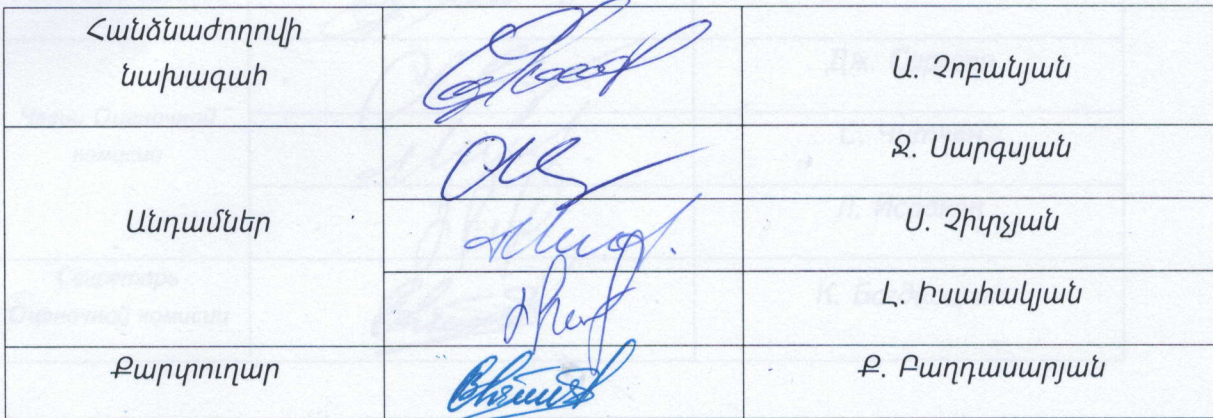 Հանձնաժողովի
նախագահ
Ա. Չոբանյան
Ջ. Սարգսյան
Անդամներ
Ս. Չիրչյան
Լ. Իսահակյան
Քարտուղար
Ք. Բաղդասարյան